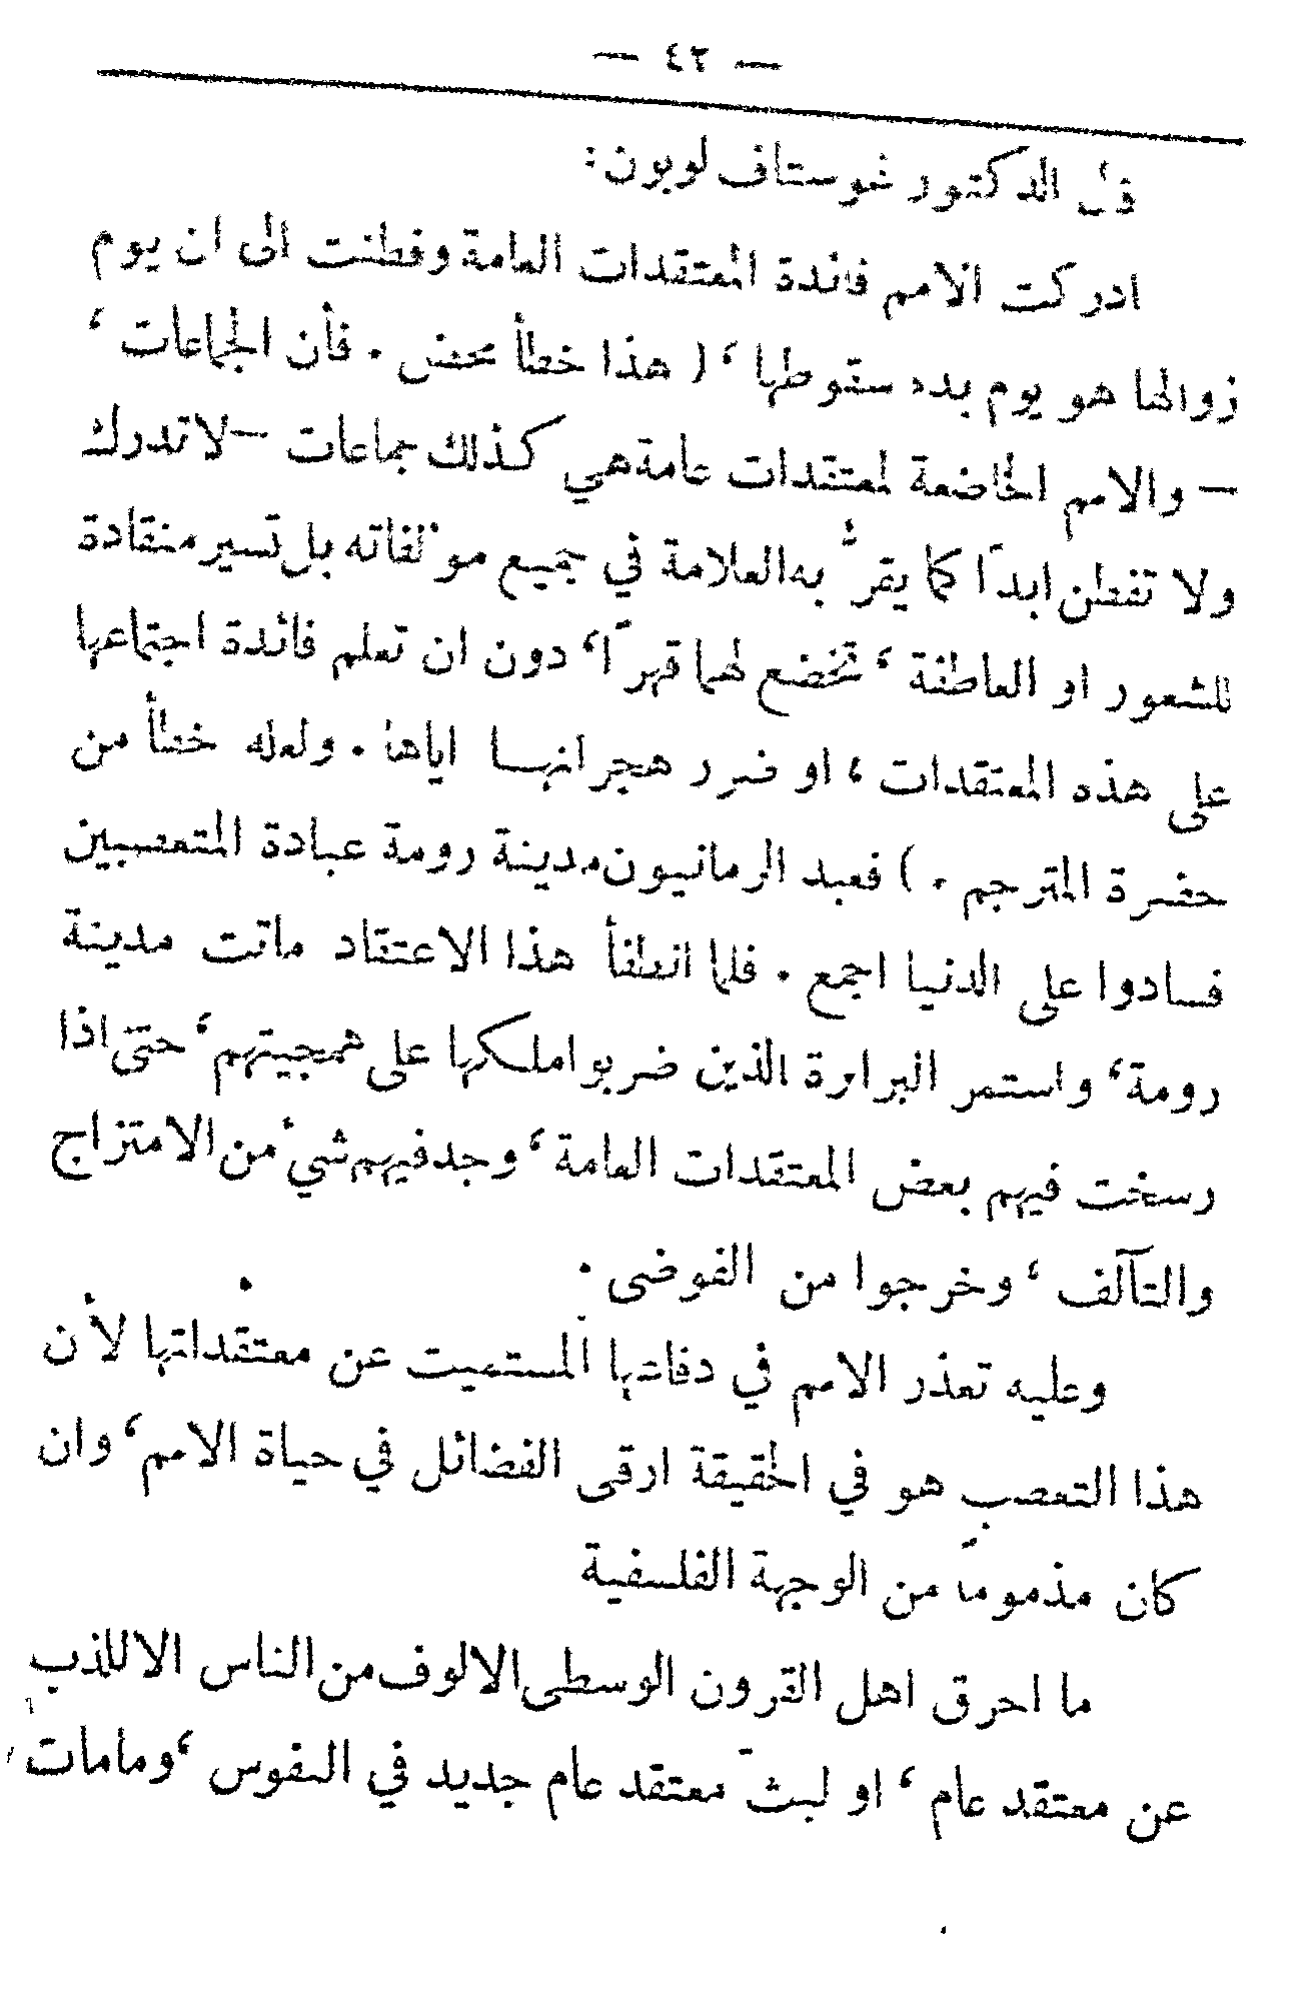 — ٤٢ —
قال الدكتور غوستاف لوبون:
ادركت الامم فائدة المعتقدات العامة وفطنت الى ان يوم
زوالها هو يوم بدء سقوطها ، ( هذا خطأ محض . فأن الجماعات ،
— والامم الخاضعة لمعتقدات عامة هي كذلك جماعات — لا تدرك
ولا تفطن ابدًا كما يقرُّ به العلامة في جميع موْلفاته بل تسير منقادة
للشعور او العاطفة ، تخضع لهما قهرًا، دون ان تعلم فائدة اجتماعها
على هذه المعتقدات ، او ضرر هجرانهـا اياها . ولعله خطأ من
حضرة المترجم . ) فعبد الرمانيون مدينة رومة عبادة المتعصبين
فسادوا على الدنيا اجمع . فلما انطفأ هذا الاعتقاد ماتت مدينة
رومة، واستمر البرابرة الذين ضربوا ملكها على همجيتهم، حتى اذا
رسخت فيهم بعض المعتقدات العامة ، وجد فيهم شيء من الامتزاج
والتآلف ، وخرجوا من الفوضى .
وعليه تعذر الامم في دفاعها المستميت عن معتقداتها لأن
هذا التعصب هو في الحقيقة ارقى الفضائل في حياة الامم، وان
كان مذمومًا من الوجهة الفلسفية
ما احرق اهل القرون الوسطى الالوف من الناس الا للذب
عن معتقد عام ، او لبثّ معتقد عام جديد في النفوس ، وما مات